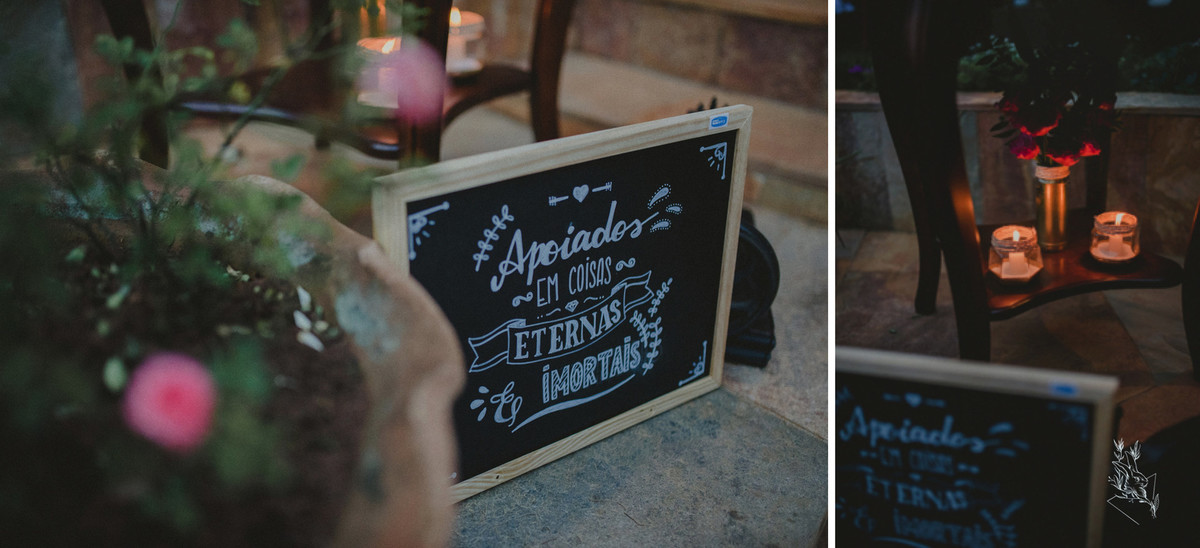 Apoiados
EM COISAS
ETERNAS
&
IMORTAIS
Apoiados
EM COISAS
ETERNAS
&
IMORTAIS